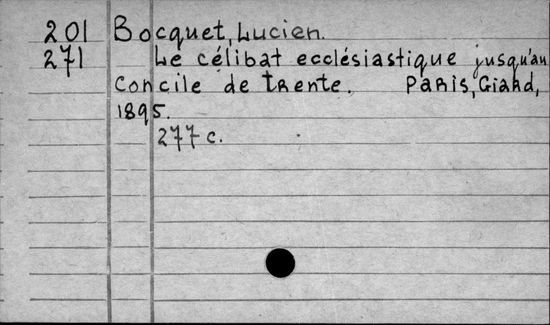 201 Bocquet, Lucien.
271 Le célibat ecclésiastique jusqu'au
Concile de Trente. Paris, Giard,
1895.
277 c.